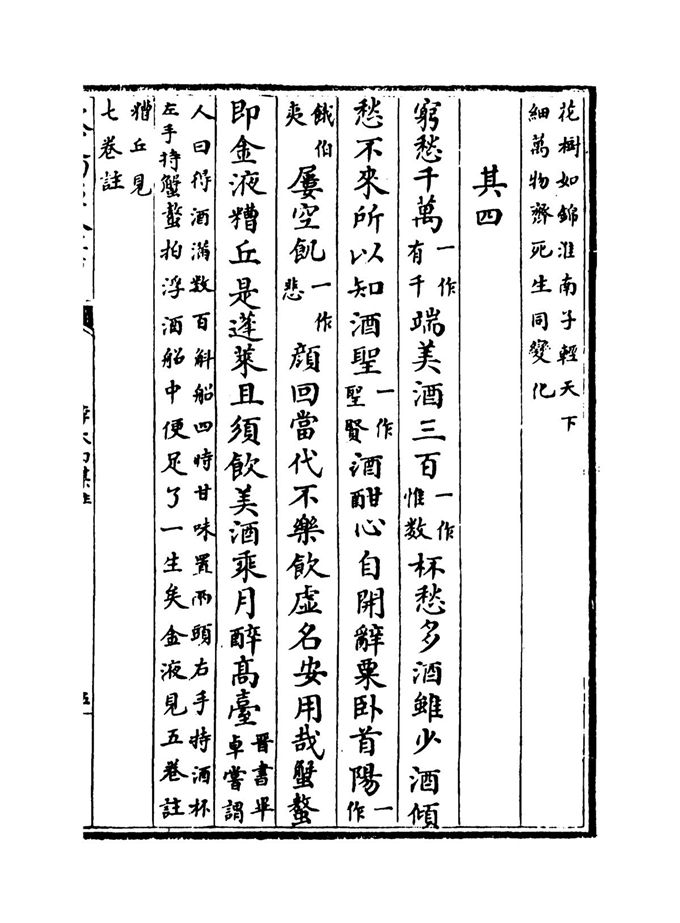 花樹如錦淮南子輕天下
細萬物齊死生同變化
其四
窮愁千萬一作有千端美酒三百一作惟数杯愁多酒雖少酒傾
愁不來所以知酒聖一作聖賢酒酣心自開辭粟卧首陽一作
餓伯夷屢空飢一作悲顔回當代不樂飲虛名安用哉蟹螯
即金液糟丘是蓬萊且須飲美酒乘月醉髙臺晉書畢卓嘗謂
人曰得酒滿数百斛船四時甘味置兩頭右手持酒杯
左手持蟹螯拍浮酒船中便足了一生矣金液見五卷註
糟丘見
七卷註